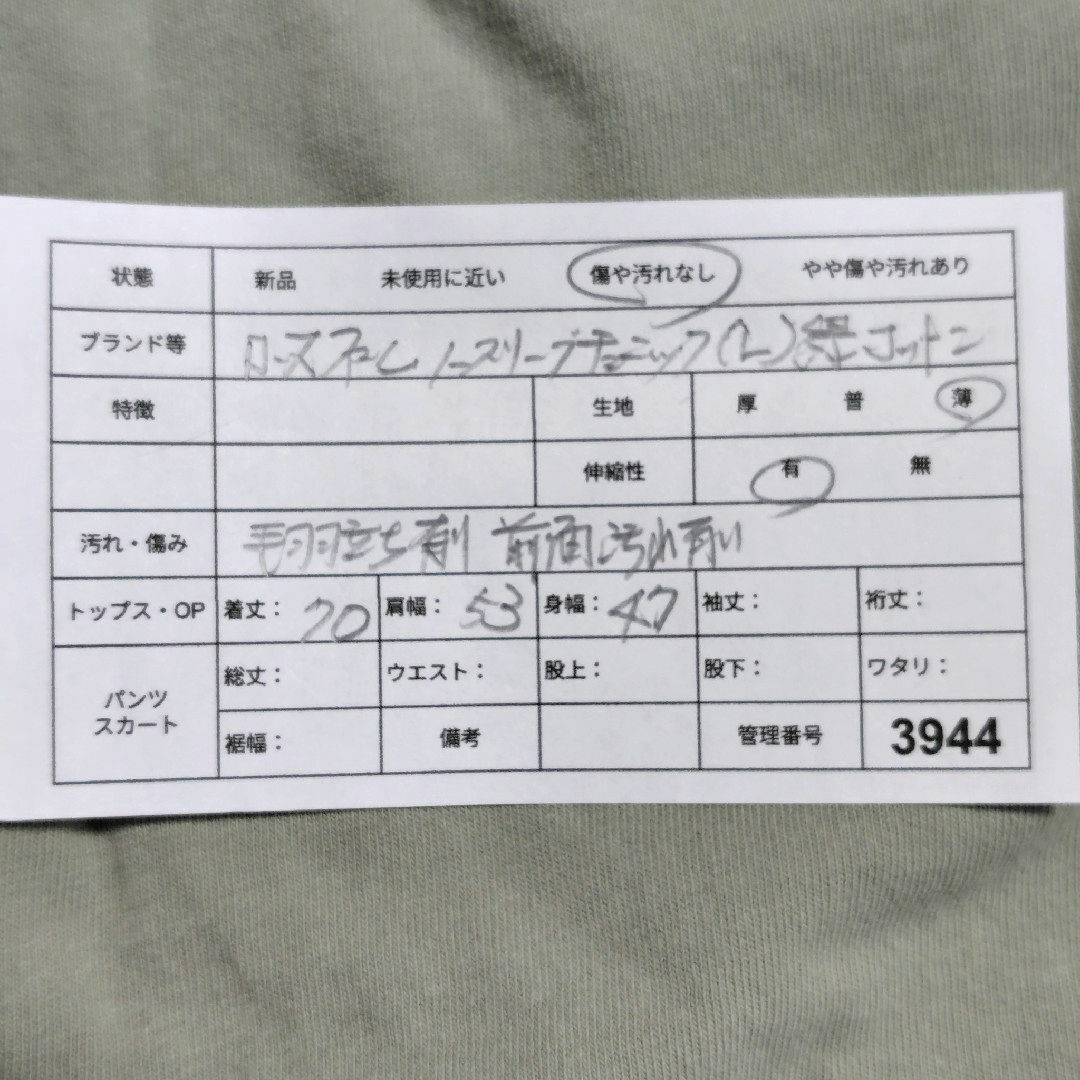 状態 新品 未使用に近い 傷や汚れなし やや傷や汚れあり
ブランド等 ノースリーブチュニック(L) 緑 コットン
特徴 生地 厚 普 薄
伸縮性 有 無
汚れ・傷み 毛羽立ち有り 前面汚れ有り
トップス・OP 着丈: 70 肩幅: 53 身幅: 47 袖丈: 裄丈:
パンツ スカート 総丈: ウエスト: 股上: 股下: ワタリ:
裾幅: 備考 管理番号 3944